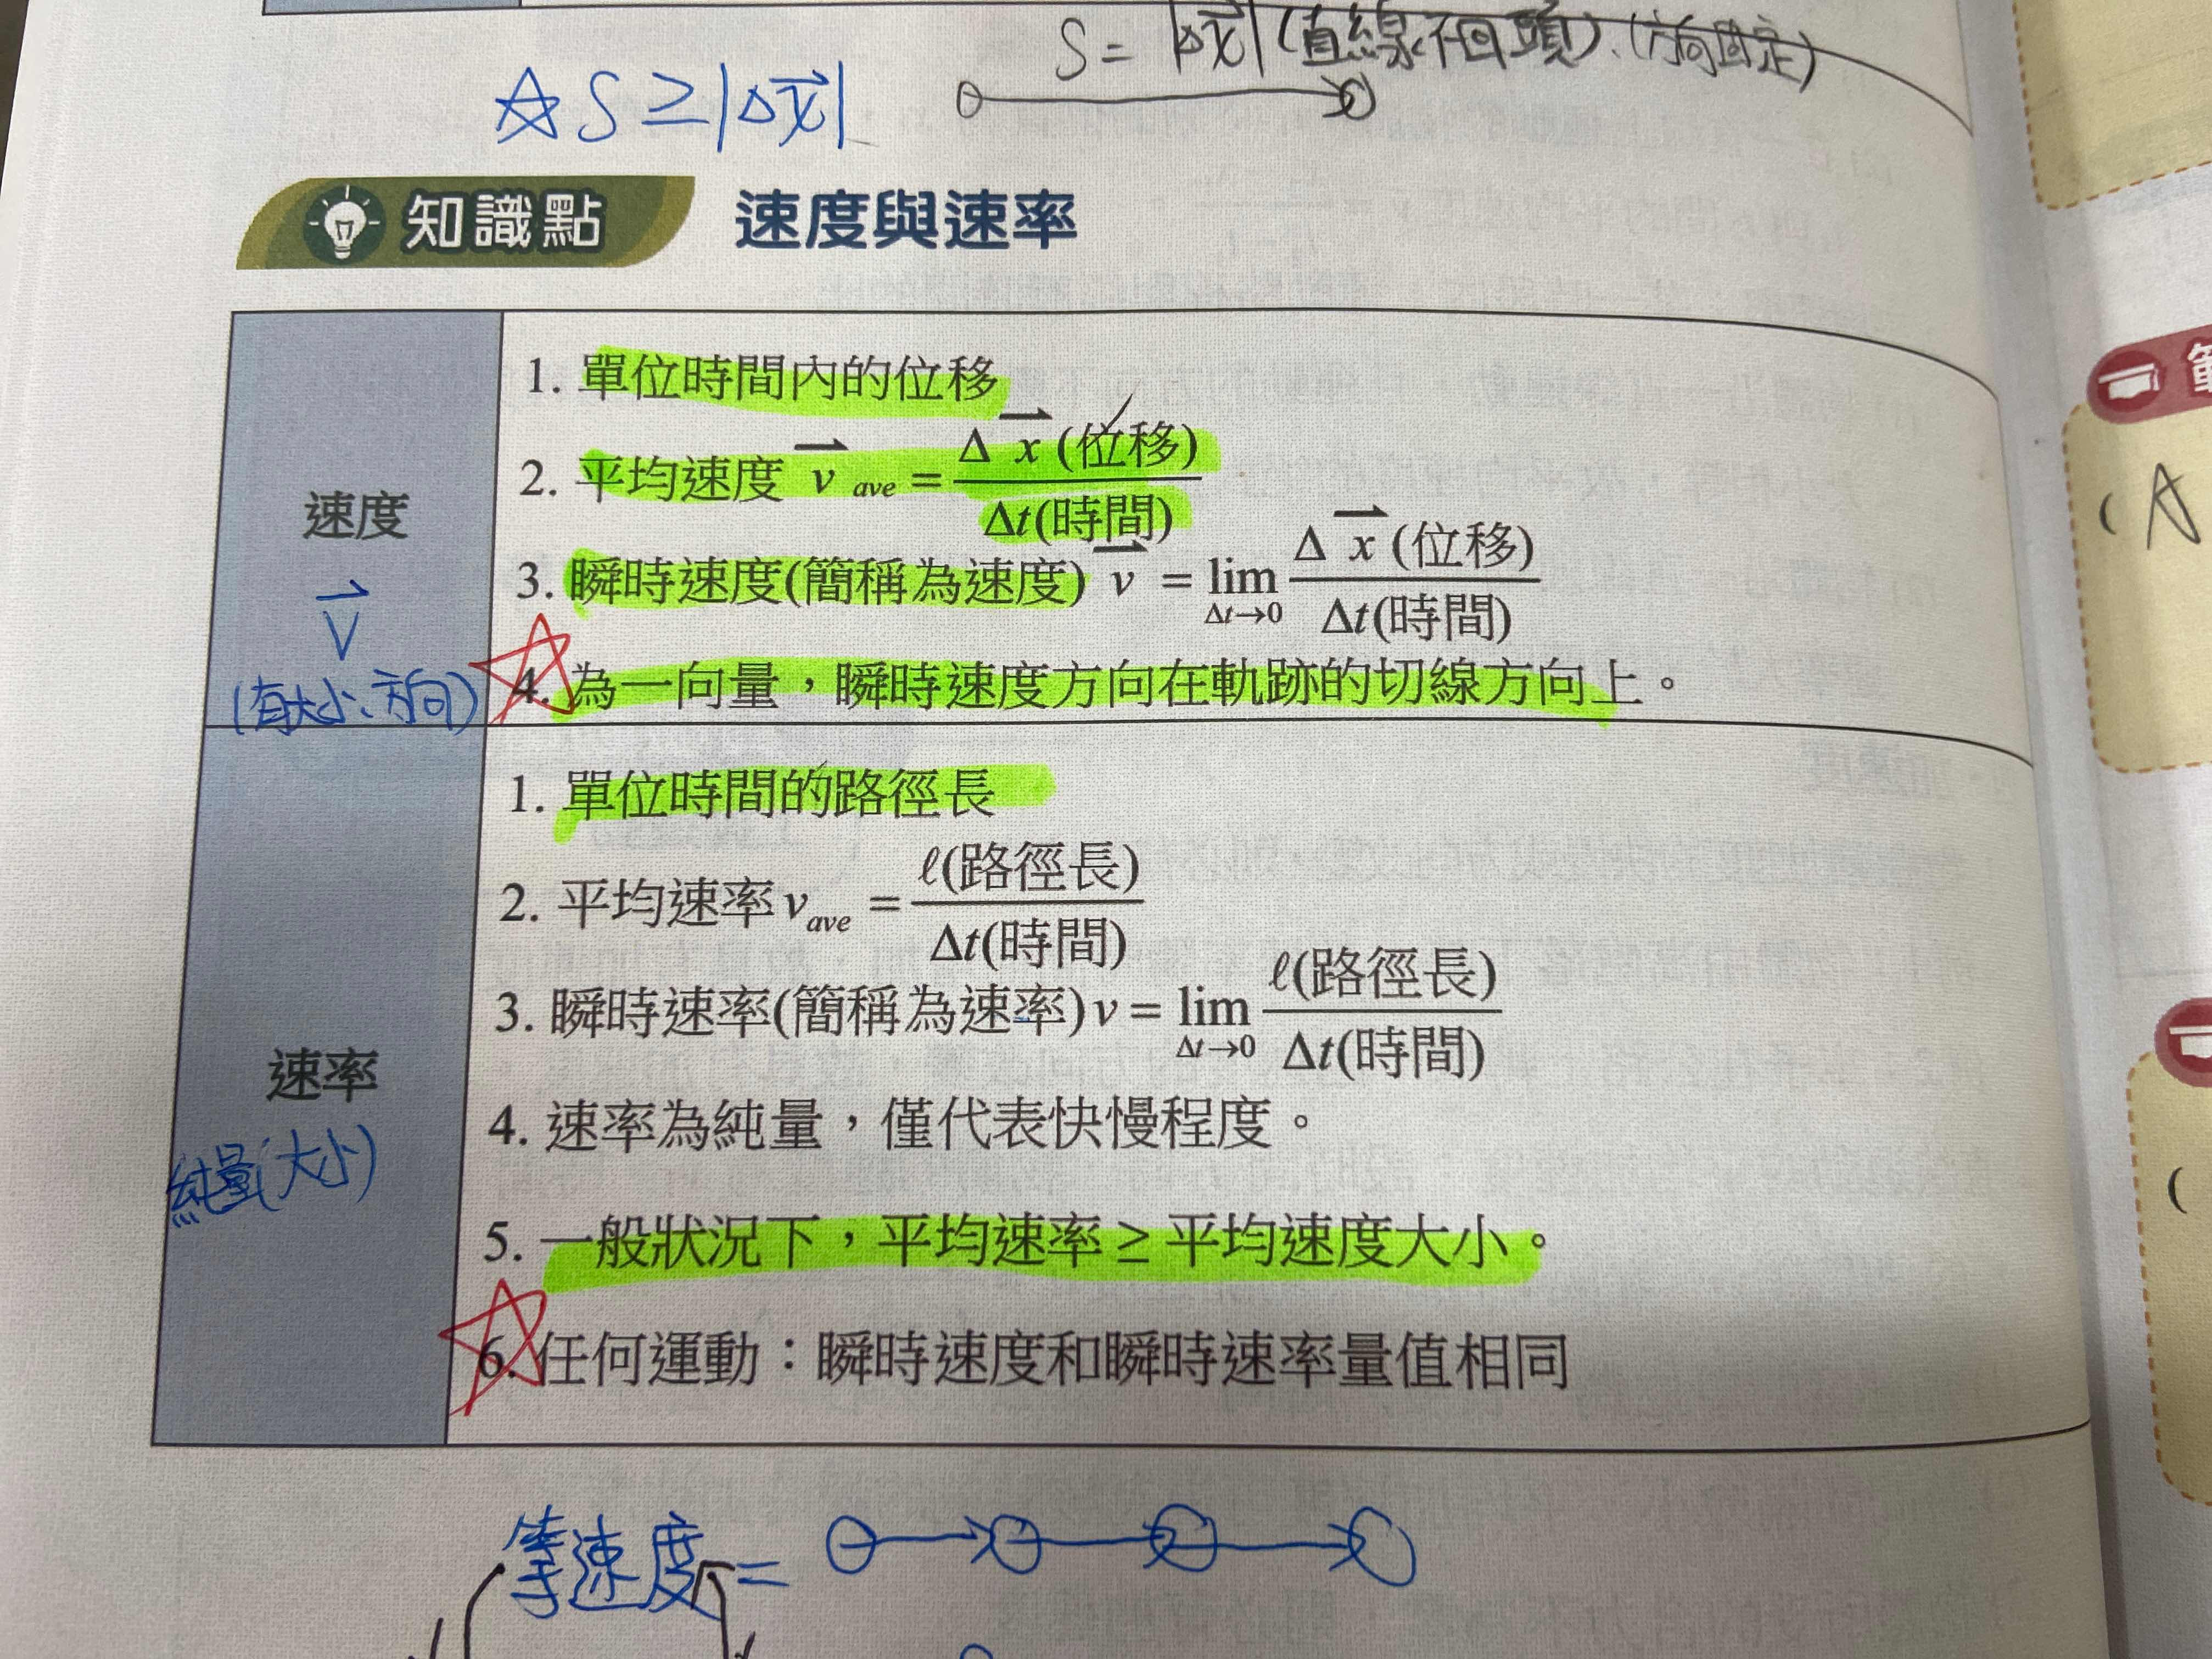 S = |Δx⃗| (直線不回頭)、(方向固定)
☆ S ≥ |Δx⃗|
知識點 速度與速率
速度
V⃗
(有大小、方向)
1. 單位時間內的位移
2. 平均速度 v⃗ ave = Δx⃗ (位移) / Δt(時間)
3. 瞬時速度(簡稱為速度) v⃗ = lim Δt→0 Δx⃗ (位移) / Δt(時間)
☆ 4. 為一向量，瞬時速度方向在軌跡的切線方向上。
速率
純量(大小)
1. 單位時間的路徑長
2. 平均速率 vave = ℓ(路徑長) / Δt(時間)
3. 瞬時速率(簡稱為速率) v = lim Δt→0 ℓ(路徑長) / Δt(時間)
4. 速率為純量，僅代表快慢程度。
5. 一般狀況下，平均速率 ≥ 平均速度大小。
☆ 6. 任何運動：瞬時速度和瞬時速率量值相同
等速度 =
(A
(